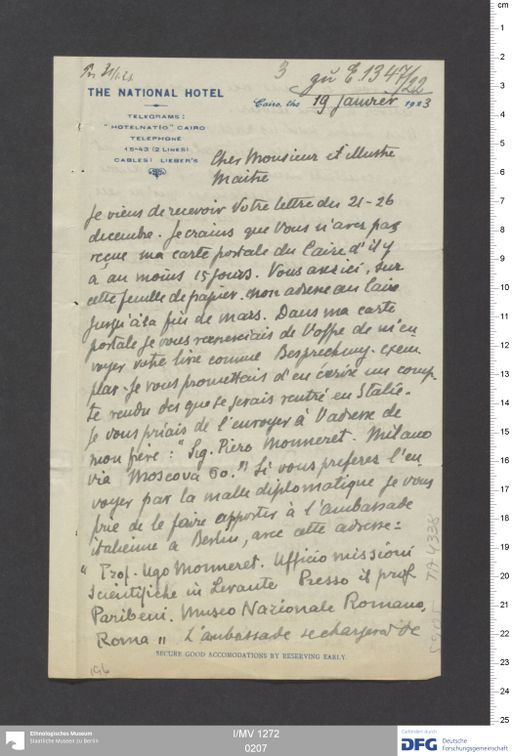 3
zu E. 1347/22
THE NATIONAL HOTEL
Cairo, the 19 janvier 1923
TELEGRAMS:
"HOTELNATIO" CAIRO
TELEPHONE
15-43 (2 LINES)
CABLES: LIEBER'S
Cher Monsieur et illustre
Maître
Je viens de recevoir Votre lettre du 21-26
decembre. Je crains que Vous n'avez pas
reçue ma carte postale du Caire d'il y
a au moins 15 jours. Vous avez ici, sur
cette feuille de papier, mon adresse au Caire
jusqu'à la fin de mars. Dans ma carte
postale je vous remerciais de l'offre de m'en
voyer votre livre comme Besprechung-exem
plar. Je vous promettais d'en ecrire un comp-
te rendu des que je serais rentré en Italie.
Je vous priais de l'envoyer à l'adresse de
mon frère: "Sig. Piero Monneret. Milano
via Moscova 60." Si vous preferes l'en
voyer par la malle diplomatique je vous
prie de le faire apporter à l'ambassade
italienne a Berlin, avec cette adresse:
" Prof. Ugo Monneret. Ufficio missioni
scientifiche in Levante Presso il prof
Paribeni. Museo Nazionale Romano,
Roma " L'ambassade se chargera de
SECURE GOOD ACCOMODATIONS BY RESERVING EARLY.
TA 4338
Ethnologisches Museum
Staatliche Museen zu Berlin
I/MV 1272
0207
Gefördert durch
DFG Deutsche
Forschungsgemeinschaft
cm
1
2
3
4
5
6
7
8
9
10
11
12
13
14
15
16
17
18
19
20
21
22
23
24
25